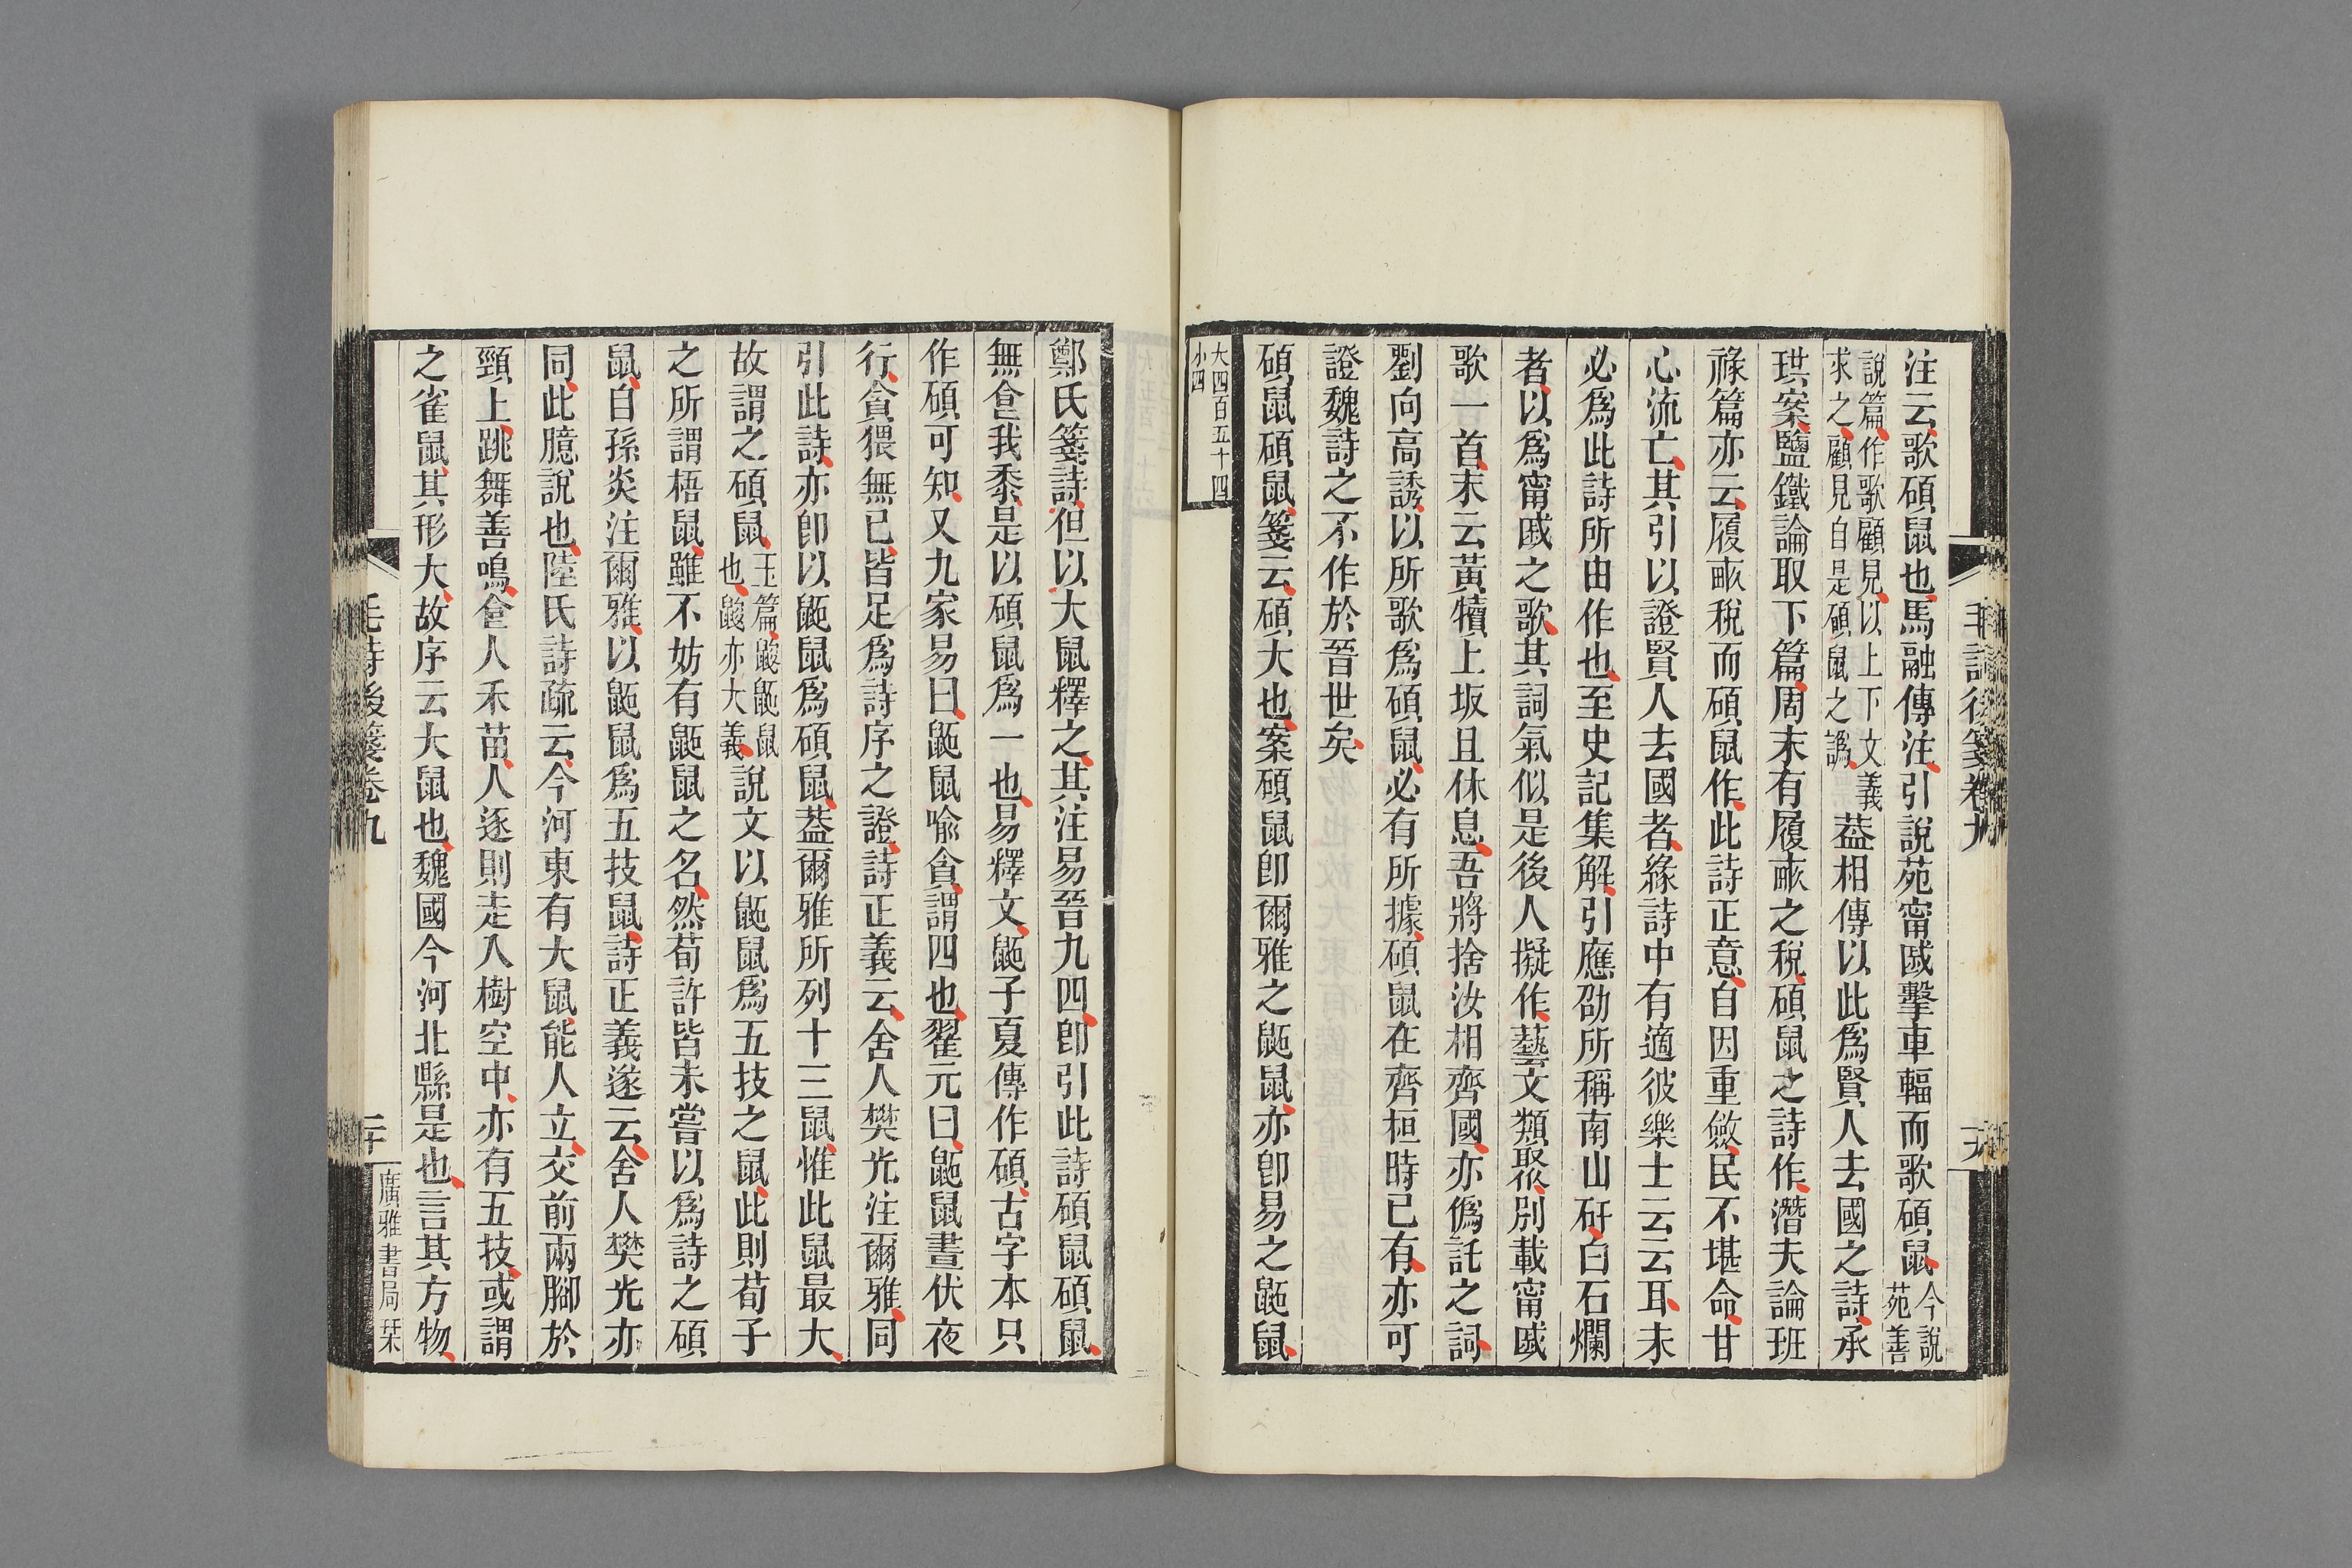 注云歌碩鼠也馬融傳注引說苑甯戚擊車輻而歌碩鼠今說苑善
說篇作歌顧見以上下文義求之顧見自是碩鼠之譌葢相傳以此爲賢人去國之詩承
珙案鹽鐵論取下篇周末有履畞之稅碩鼠之詩作潛夫論班
祿篇亦云履畞稅而碩鼠作此詩正意自因重斂民不堪命甘
心流亡其引以證賢人去國者緣詩中有適彼樂土云云耳未
必爲此詩所由作也至史記集解引應劭所稱南山矸白石爛
者以爲甯戚之歌其詞氣似是後人擬作藝文類聚別載甯戚
歌一首末云黃犢上坂且休息吾將捨汝相齊國亦僞託之詞
劉向高誘以所歌爲碩鼠必有所據碩鼠在齊桓時已有亦可
證魏詩之不作於晉世矣
碩鼠碩鼠箋云碩大也案碩鼠卽爾雅之鼫鼠亦卽易之鼫鼠
大四百五十四
小四
毛詩後箋卷九
鄭氏箋詩但以大鼠釋之其注易晉九四卽引此詩碩鼠碩鼠
無食我黍是以碩鼠爲一也易釋文鼫子夏傳作碩古字本只
作碩可知又九家易曰鼫鼠喻貪謂四也翟元曰鼫鼠晝伏夜
行貪猥無已皆足爲詩序之證詩正義云舍人樊光注爾雅同
引此詩亦卽以鼫鼠爲碩鼠葢爾雅所列十三鼠惟此鼠最大
故謂之碩鼠玉篇鼥鼫鼠也鼥亦大義說文以鼫鼠爲五技之鼠此則荀子
之所謂梧鼠雖不妨有鼫鼠之名然荀許皆未嘗以爲詩之碩
鼠自孫炎注爾雅以鼫鼠爲五技鼠詩正義遂云舍人樊光亦
同此臆說也陸氏詩疏云今河東有大鼠能人立交前兩腳於
頸上跳舞善鳴食人禾苗人逐則走入樹空中亦有五技或謂
之雀鼠其形大故序云大鼠也魏國今河北縣是也言其方物
毛詩後箋卷九
二十
廣雅書局栞